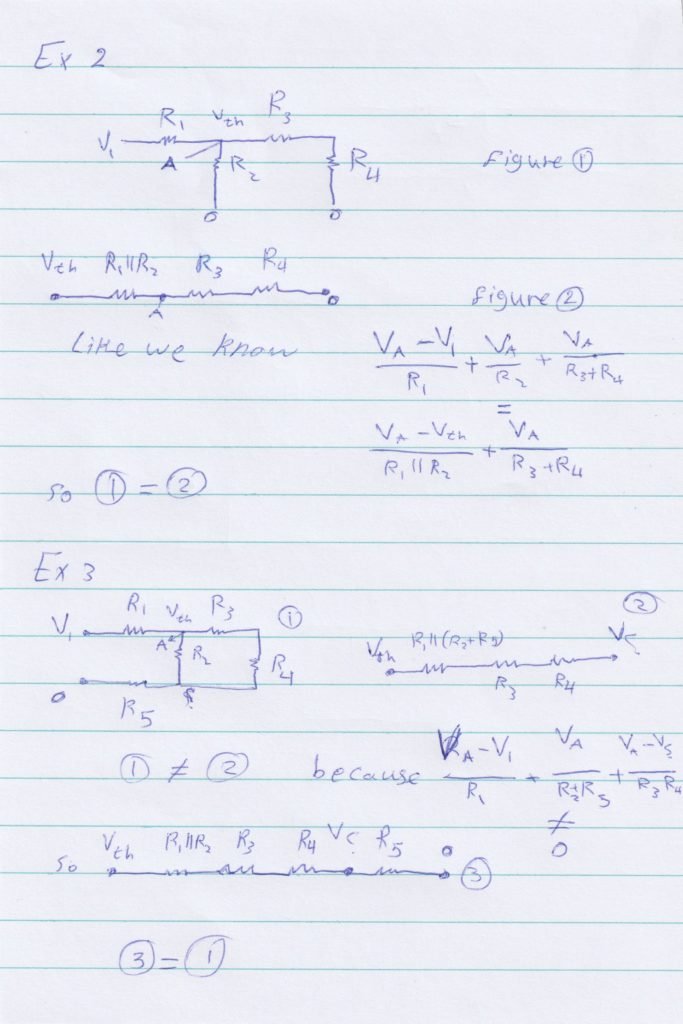 Ex 2
R1 Vth R3
V1 A R2 R4 Figure ①
0 0
Vth R1||R2 R3 R4
A 0 figure ②
Like we know (VA - V1)/R1 + VA/R2 + VA/(R3+R4)
=
(VA - Vth)/(R1||R2) + VA/(R3+R4)
so ① = ②
Ex 3
R1 Vth R3 ①
V1 A R2 R4
0 R5
②
Vth R1||(R2+R5) R3 R4
① ≠ ② because (VA - V1)/R1 + VA/(R2+R5) +
≠
0
so Vth R1||R2 R3 R4 R5 0 ③
③ = ①